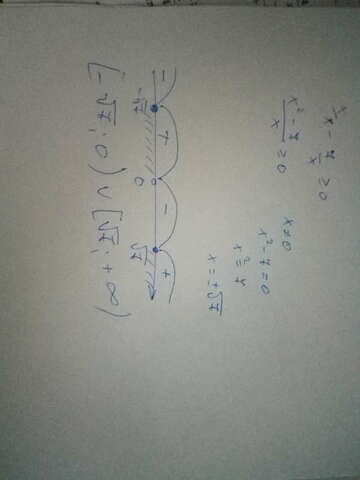 x
x - 7/x ≥ 0
x² - 7 / x ≥ 0
x ≠ 0
x² - 7 = 0
x² = 7
x = ±√7
- + - +
-√7 0 √7
[-√7; 0) ∪ [√7; +∞)